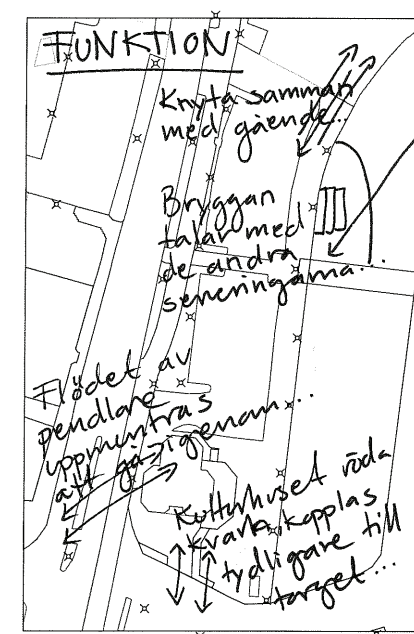 FUNKTION
Knyta samman
med gående...
Bryggan
talar med
de andra
seneringarna...
Flödet av
pendlare
uppmuntras
att gå igenom...
Kulturhuset röda
kvarn kopplas
tydligare till
torget...